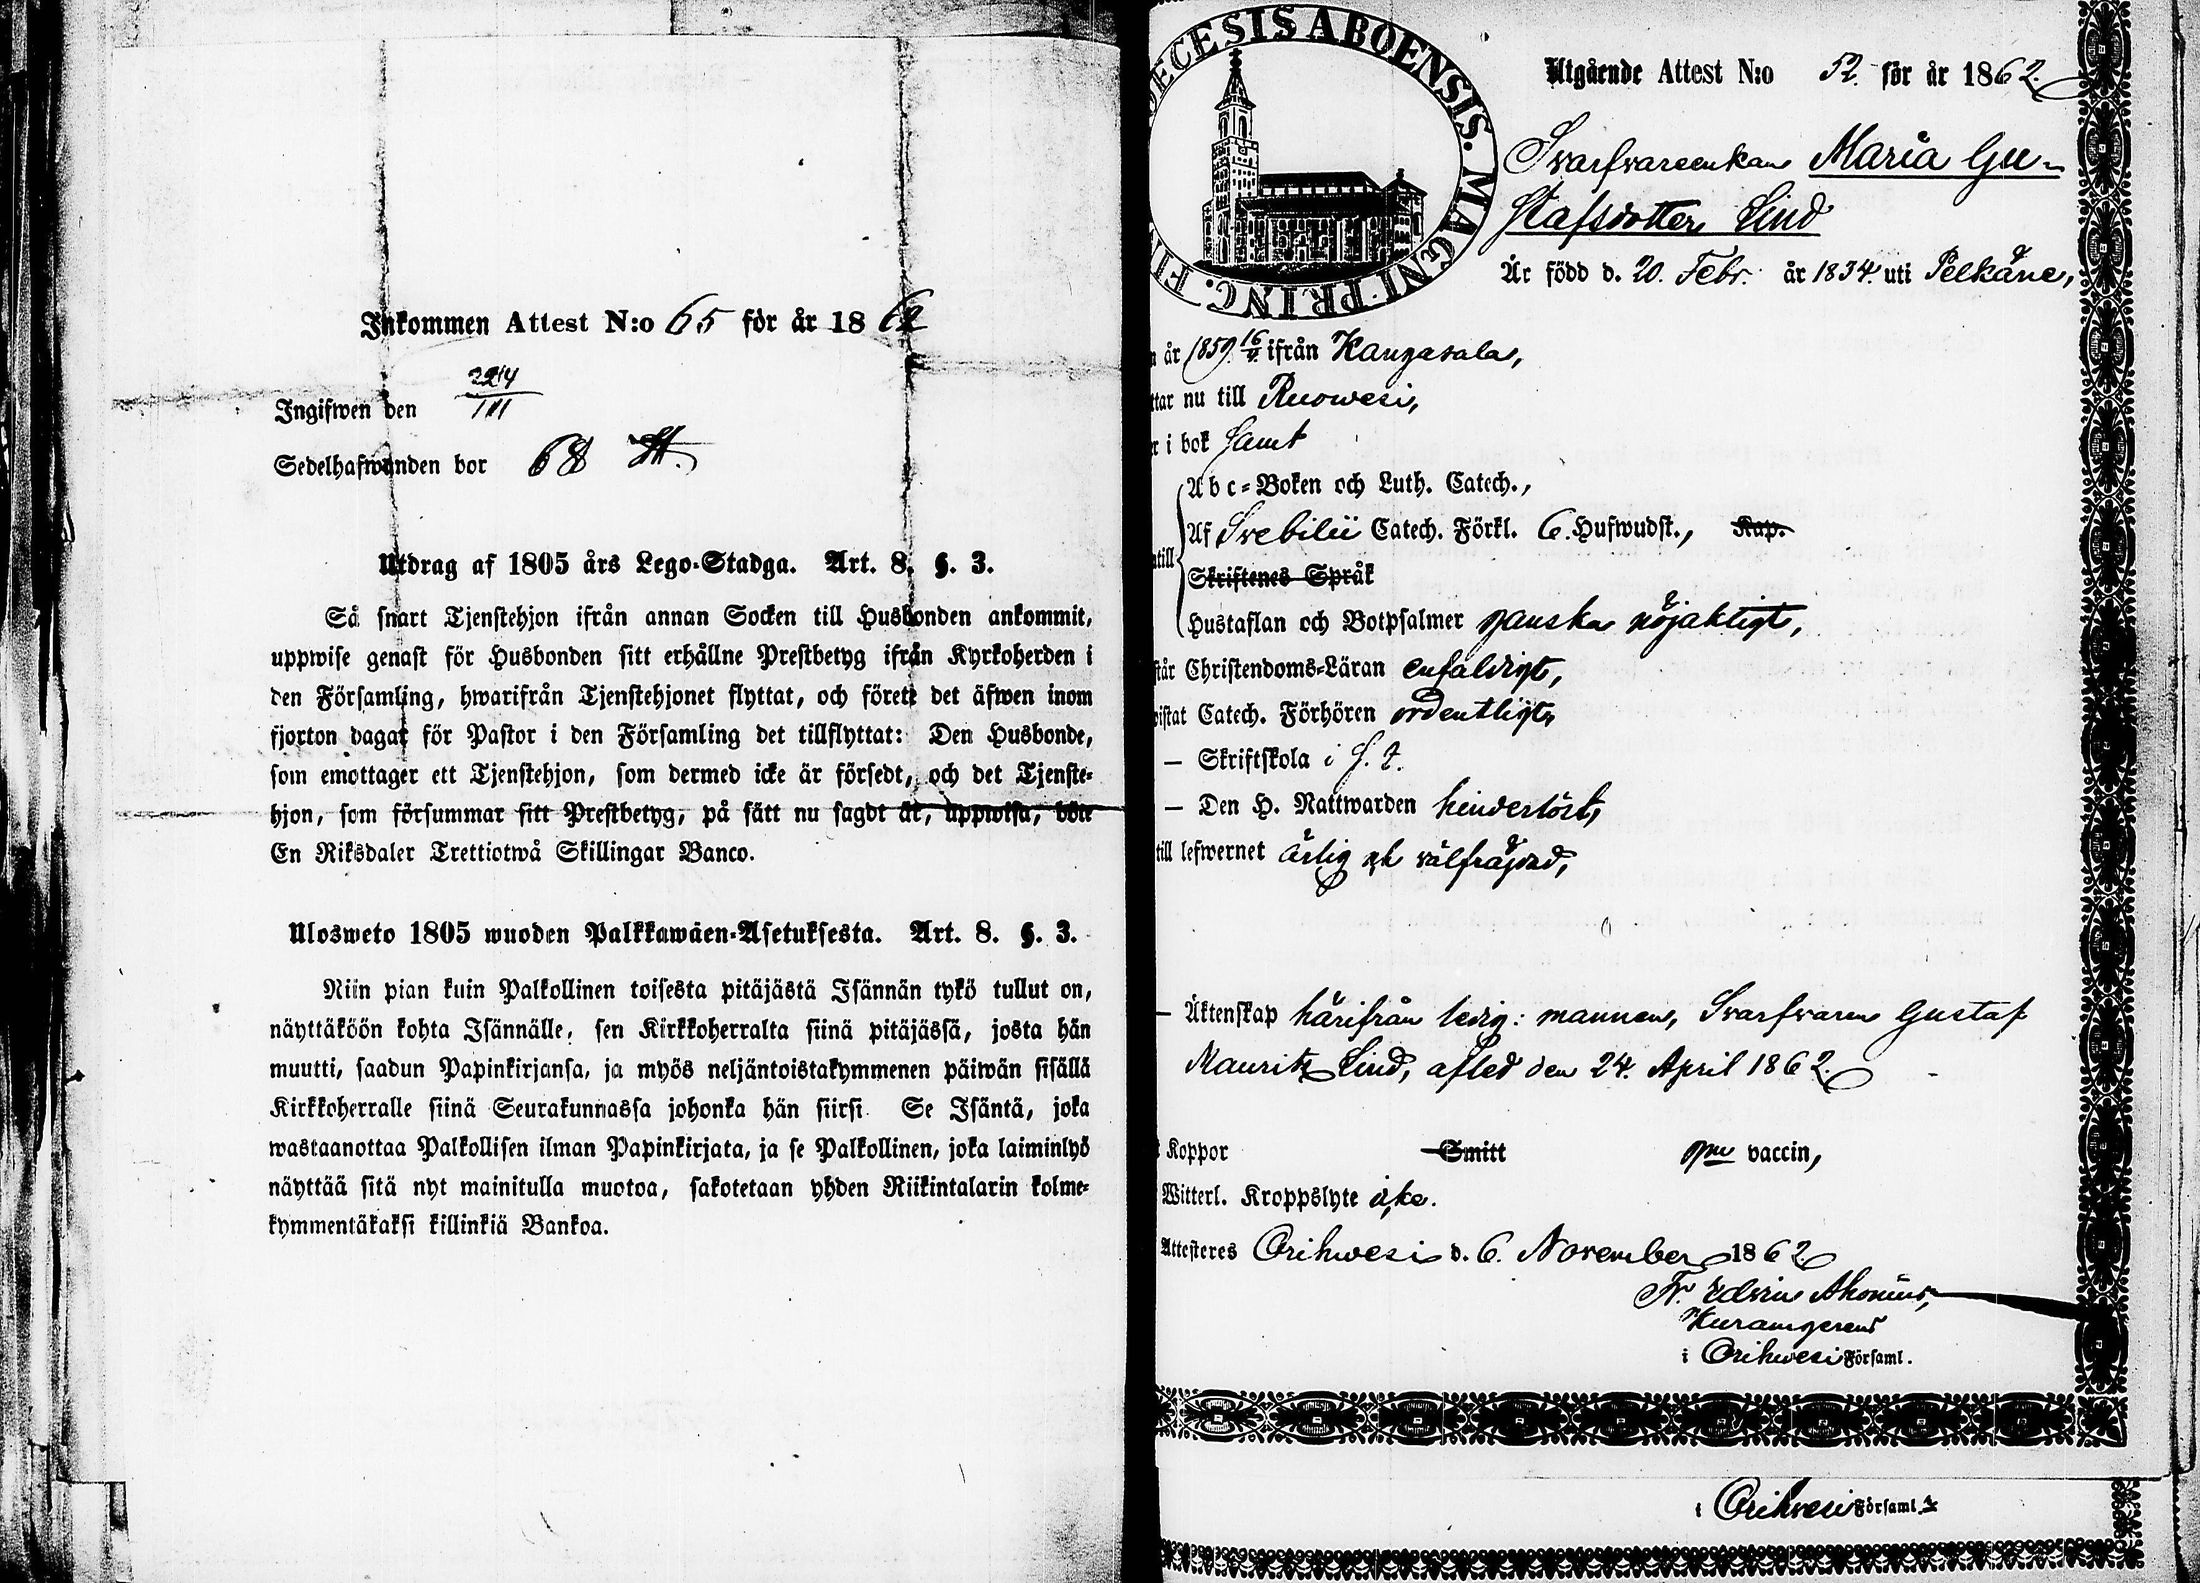 Inkommen Attest N:o 65 för år 1862
Ingifwen den
Sedelhafwanden bor 68
Utdrag af 1805 års Lego-Stadga. Art. 8. §. 3.
Så snart Tjenstehjon ifrån annan Socken till Husbonden ankommit,
uppwise genast för Husbonden sitt erhållne Prestbetyg ifrån Kyrkoherden i
den Församling, hwarifrån Tjenstehjonet flyttat, och förete det äfwen inom
fjorton dagar för Pastor i den Församling det tillflyttat: Den Husbonde,
som emottager ett Tjenstehjon, som dermed icke är försedt, och det Tjenste-
hjon, som försummar sitt Prestbetyg, på sätt nu sagdt är, uppwisa, böte
En Riksdaler Trettiotwå Skillingar Banco.
Ulosweto 1805 wuoden Palkkawäen-Asetuksesta. Art. 8. §. 3.
Niin pian kuin Palkollinen toisesta pitäjästä Isännän tykö tullut on,
näyttäköön kohta Isännälle, sen Kirkkoherralta siinä pitäjässä, josta hän
muutti, saadun Papinkirjansa, ja myös neljäntoistakymmenen päiwän sisällä
Kirkkoherralle siinä Seurakunnassa johonka hän siirsi. Se Isäntä, joka
wastaanottaa Palkollisen ilman Papinkirjata, ja se Palkollinen, joka laiminlyö
näyttää sitä nyt mainitulla muotoa, sakotetaan yhden Riikintalarin kolme-
kymmentäkaksi killinkiä Bankoa.
ECESIS ABOENSIS. MAGNI PRINC. FI
Utgående Attest N:o 52. för år 1862.
Svarfvareenkan Maria Gu-
stafsdotter Lind
Är född d. 20. Febr. år 1834. uti Pelkäne,
år 1859 ifrån Kangasala,
ttar nu till Ruowesi,
r i bok samt
Abc-Boken och Luth. Catech.,
Af Svebilii Catech. Förkl. 6. Hufwudst., Kap.
ntill
Skriftenes Språk
Hustaflan och Botpsalmer ganska nöjaktigt,
står Christendoms-Läran enfaldigt,
wistat Catech. Förhören ordentligt,
— Skriftskola i s. t.
— Den H. Nattwarden hinderlöst,
till lefwernet ärlig och välfrägdad,
— Äktenskap härifrån ledig: mannen, Svarfvaren Gustaf
Mauritz Lind, afled den 24. April 1862.
t Koppor Smitt gm vaccin,
Witterl. Kroppslyte icke.
Attesteres Orihwesi d. 6. November 1862
Fr. Edvin Ahonius,
i Orihwesi Församl.
i Orihwesi Församl.